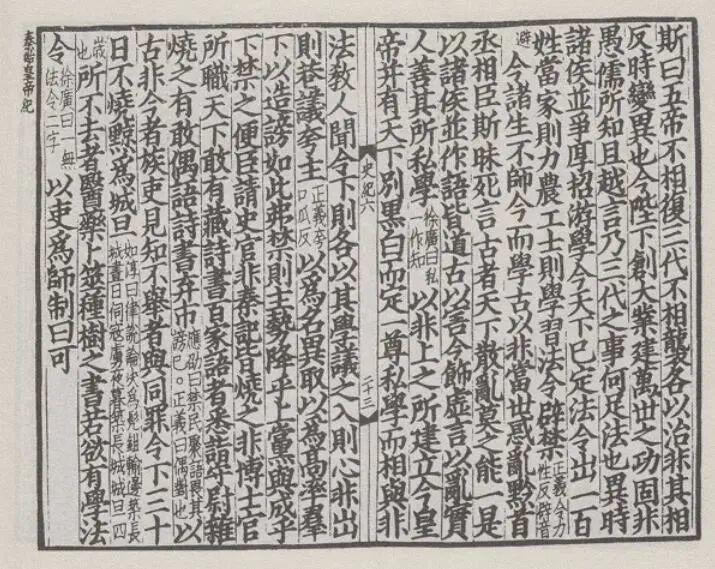 斯曰五帝不相復三代不相襲各以治非其相
反時變異也今陛下創大業建萬世之功固非
愚儒所知且越言乃三代之事何足法也異時
諸侯並爭厚招游學今天下已定法令出一百
姓當家則力農工士則學習法令辟禁正義令力性反辟音
避今諸生不師今而學古以非當世惑亂黔首
丞相臣斯昧死言古者天下散亂莫之能一是
以諸侯並作語皆道古以害今飾虛言以亂實
人善其所私學徐廣曰私一作知以非上之所建立今皇
帝并有天下別黑白而定一尊私學而相與非
史紀六 二十三
法教人聞令下則各以其學議之入則心非出
則巷議夸主正義夸口瓜反以為名異取以為高率羣
下以造謗如此弗禁則主勢降乎上黨與成乎
下禁之便臣請史官非秦記皆燒之非博士官
所職天下敢有藏詩書百家語者悉詣守尉雜
燒之有敢偶語詩書弃市應劭曰禁民聚語畏其謗已○正義曰偶對也以
古非今者族吏見知不舉者與同罪令下三十
日不燒黥為城旦如淳曰律說論決為髡鉗輸邊築長城晝日伺寇虜夜暮築長城城旦四
歲也所不去者醫藥卜筮種樹之書若欲有學法
令徐廣曰一無法令二字以吏為師制曰可
秦始皇帝紀